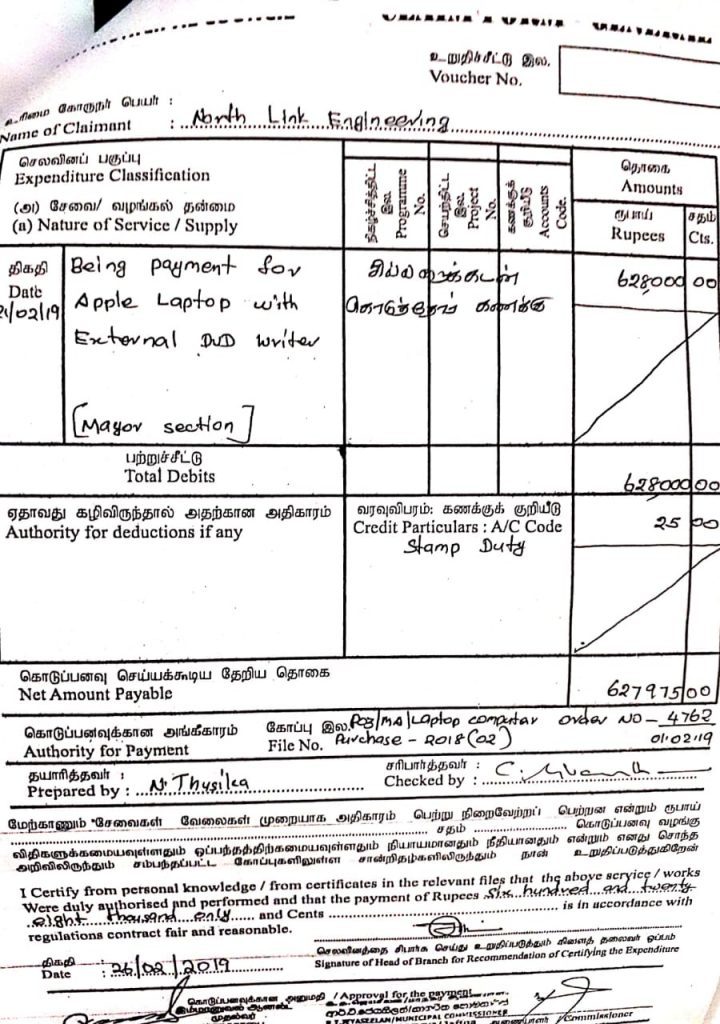 உறுதிச்சீட்டு இல.
Voucher No.
உரிமை கோருநர் பெயர் :
Name of Claimant : North Link Engineering
செலவினப் பகுப்பு
Expenditure Classification
(அ) சேவை/ வழங்கல் தன்மை
(a) Nature of Service / Supply
நிகழ்ச்சித்திட்ட இல.
Programme No.
செயற்திட்ட இல
Project No.
கணக்குக் குறியீடு
Accounts Code.
தொகை
Amounts
ரூபாய் சதம்
Rupees Cts.
திகதி
Date
21/02/19
Being payment for
Apple Laptop with
External DVD Writer
[Mayor section]
சில்லறைக்கடன்
கணக்கு
628000 00
பற்றுச்சீட்டு
Total Debits 628000 00
ஏதாவது கழிவிருந்தால் அதற்கான அதிகாரம்
Authority for deductions if any
வரவுவிபரம்: கணக்குக் குறியீடு
Credit Particulars : A/C Code 25 00
Stamp Duty
கொடுப்பனவு செய்யக்கூடிய தேறிய தொகை
Net Amount Payable 627975 00
கொடுப்பனவுக்கான அங்கீகாரம் கோப்பு இல. /MA/Laptop computer order NO - 4762
Authority for Payment File No. Purchase - 2018(02) 01.02.19
தயாரித்தவர் : சரிபார்த்தவர் :
Prepared by : N. Thusika Checked by :
மேற்காணும் சேவைகள் வேலைகள் முறையாக அதிகாரம் பெற்று நிறைவேற்றப் பெற்றன என்றும் ரூபாய்
சதம் கொடுப்பனவு வழங்கு
விதிகளுக்கமையவுள்ளதும் ஒப்பந்தத்திற்கமையவுள்ளதும் நியாயமானதும் நீதியானதும் என்றும் எனது சொந்த
அறிவிலிருந்தும் சம்பந்தப்பட்ட கோப்புகளிலுள்ள சான்றிதழ்களிலிருந்தும் நான் உறுதிப்படுத்துகிறேன்
I Certify from personal knowledge / from certificates in the relevant files that the above service / works
Were duly authorised and performed and that the payment of Rupees Six hundred and twenty
eight thousand only and Cents is in accordance with
regulations contract fair and reasonable.
செலவினத்தை சிபார்சு செய்து உறுதிப்படுத்தும் கிளைத் தலைவர் ஒப்பம்
Signature of Head of Branch for Recommendation of Certifying the Expenditure
திகதி
Date : 26/02/2019
கொடுப்பனவுக்கான அனுமதி / Approval for the payment
இம்மானுவேல் ஆனல்ட்
முதல்வர்
MUNICIPAL COMMISSIONER
Commissioner